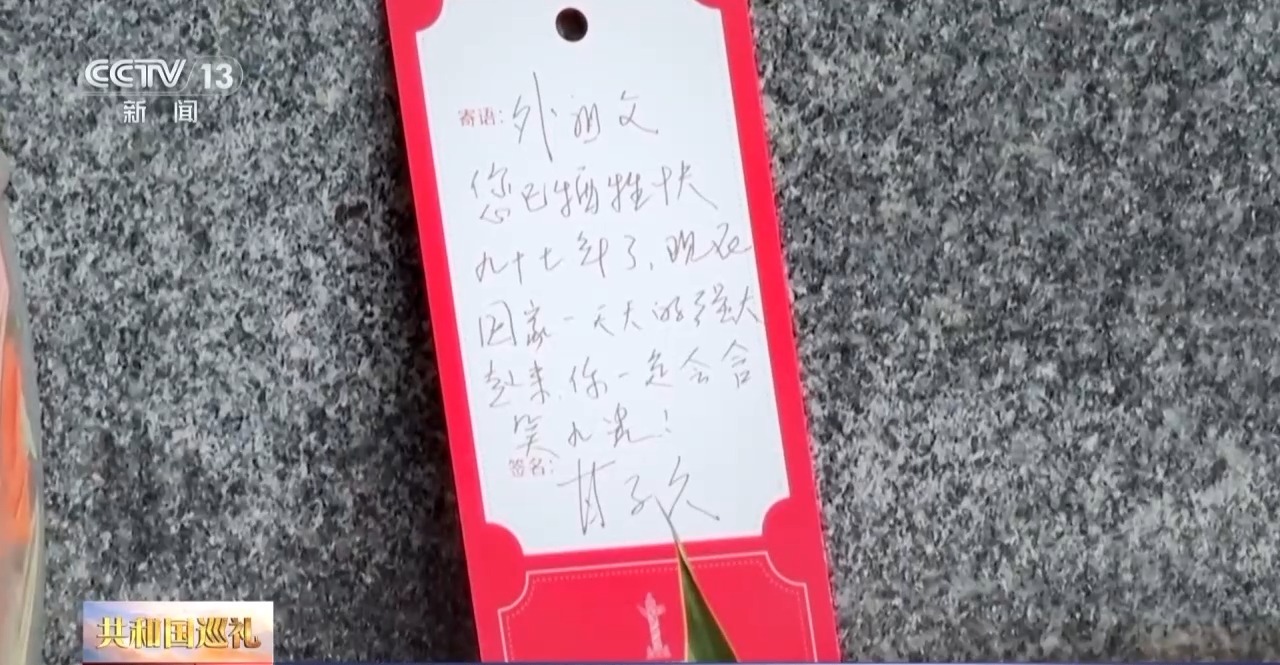 CCTV 13
新闻
寄语: 外祖父
您已牺牲快
九十七年了,现在
国家一天天的强大
起来,你一定会含
笑九泉!
签名:
共和国巡礼